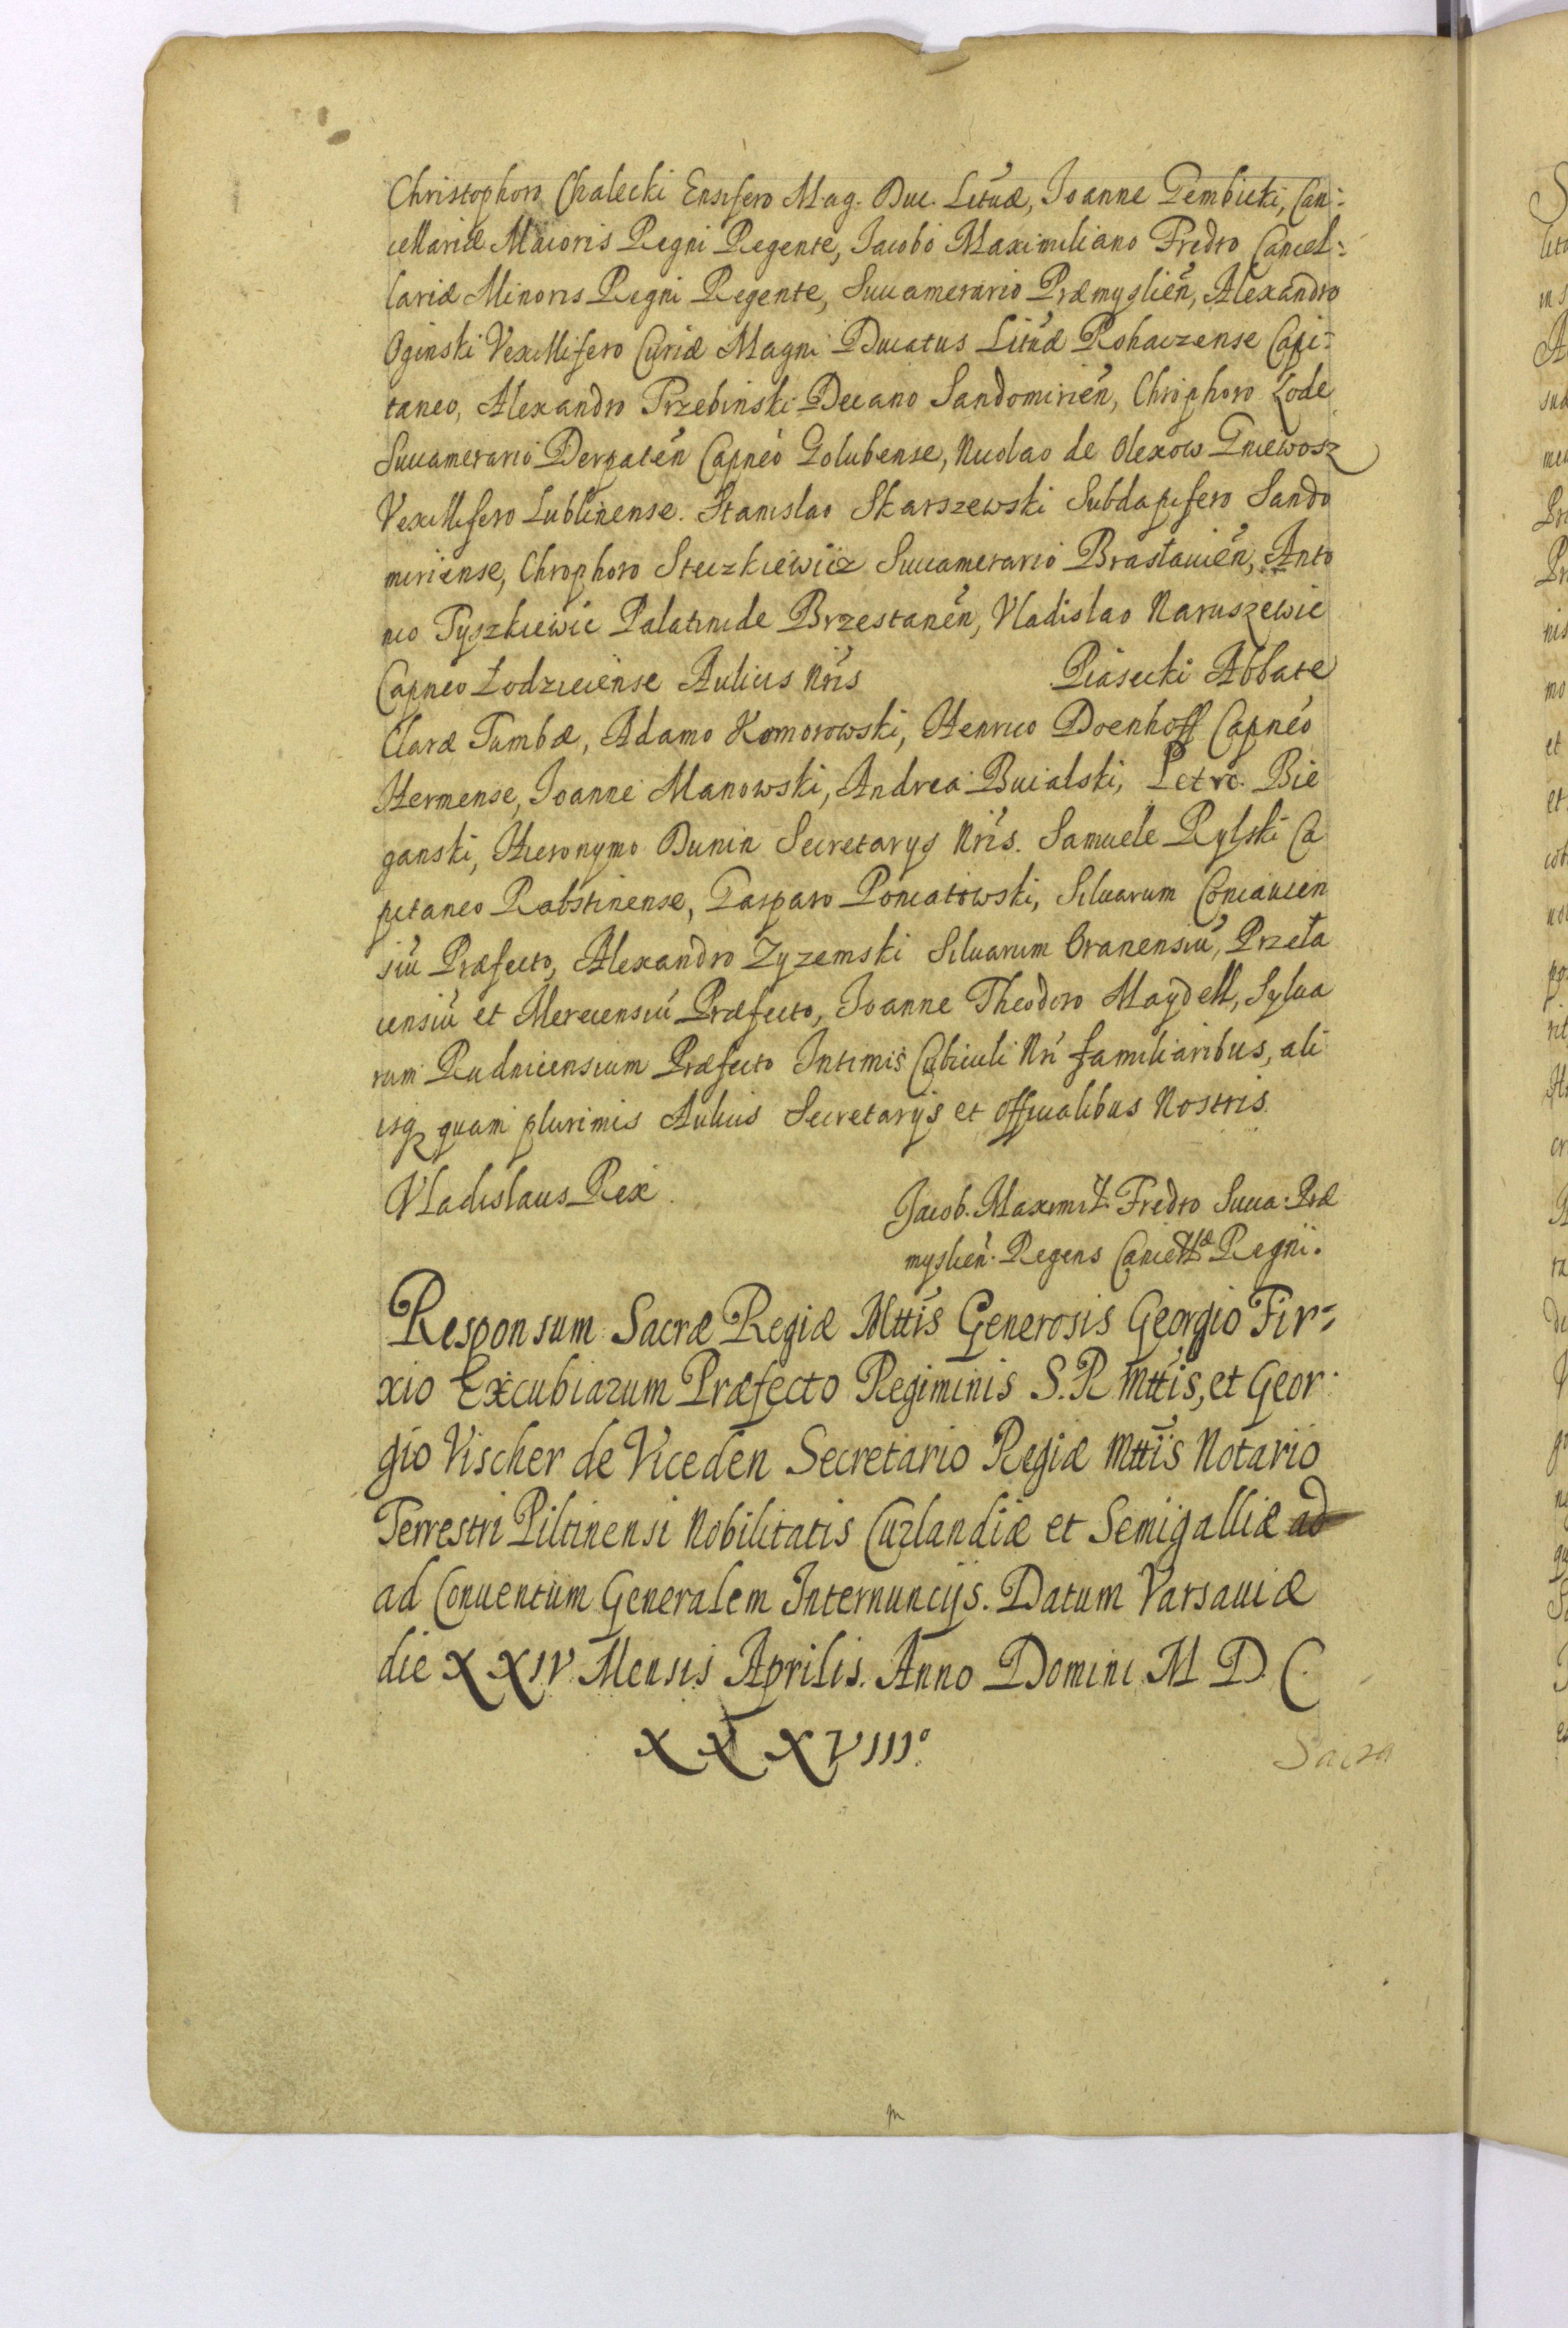 Christophoro Chalecki Ensifero Mag. Duc. Lituæ, Joanne Gembicki, Can:
cellariæ Maioris Regni Regente, Jacobo Maximiliano Fredro Cancel:
lariæ Minoris Regni Regente, Succamerario Præmyslien, Alexandro
Oginski Vexillifero Curiæ Magni Ducatus Lituæ Rohaczense Capi:
taneo, Alexandro Trzebinski Decano Sandomirien, Chrophoro Zode
Succamerario Derpaten Capneo Golubense, Nicolao de Olexow Gniewosz
Vexillifero Lublinense. Stanislao Skarszewski Subdapifero Sando
miriense, Chrophoro Steczkiewicz Succamerario Braslauien, Anto
nio Tyszkiewic Palatinide Brzestanen, Vladislao Naruszewic
Capneo Łodzieiense Aulicis Nris Piasecki Abbate
Claræ Tumbæ, Adamo Komorowski, Henrico Doenhoff Capneo
Hermense, Joanne Manowski, Andrea Bucialski, Petro. Bie
ganski, Hieronymo Dunin Secretarys Nris. Samuele Rylski Ca
pitaneo Rabstinense, Gasparo Poniatowski, Siluarum Coniauien
siu Præfecto, Alexandro Zyzemski Siluarum Oranensiu, Przeła
iensiu et Mereiensiu Præfecto, Joanne Theodoro Maydell, Sylua
rum Rudnicensium Præfecto Intimis Cubiculi Nri familiaribus, ali
isq quam plurimis Aulicis Secretarijs et Officialibus Nostris.
Vladislaus Rex.
Jacob. Maximil. Fredro Succa. Præ
myslien. Regens Cancellæ Regni.
Responsum Sacræ Regiæ Mttis Generosis Georgio Fir=
xio Excubiarum Præfecto Regiminis S. R Mttis, et Geor:
gio Vischer de Viceden Secretario Regiæ Mttis Notario
Terrestri Piltinensi Nobilitatis Curlandiæ et Semigalliæ ad
ad Conuentum Generalem Internuncijs. Datum Varsauiæ
die XXIV Mensis Aprilis. Anno Domini M D C
XXXVIIIº.
Sacra